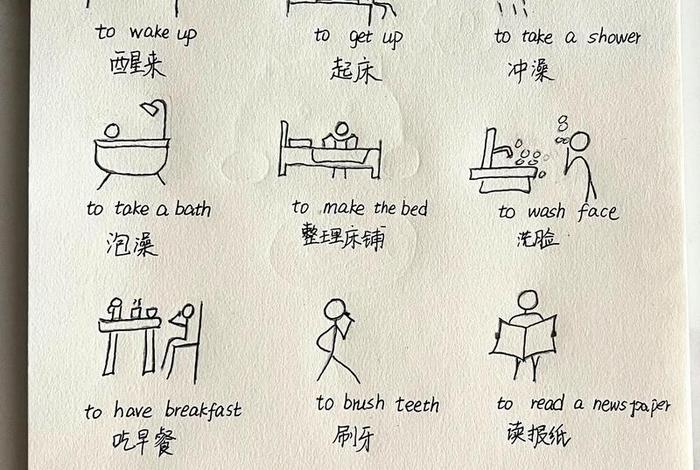 to wake up
醒来
to get up
起床
to take a shower
冲澡
to take a bath
泡澡
to make the bed
整理床铺
to wash face
洗脸
to have breakfast
吃早餐
to brush teeth
刷牙
to read a newspaper
读报纸